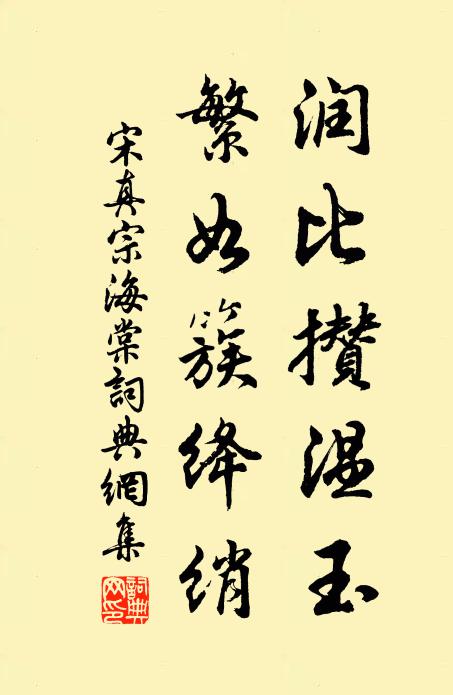 润比攒温玉
繁如簇绛绡
宋真宗海棠詞典網集
詞典网印